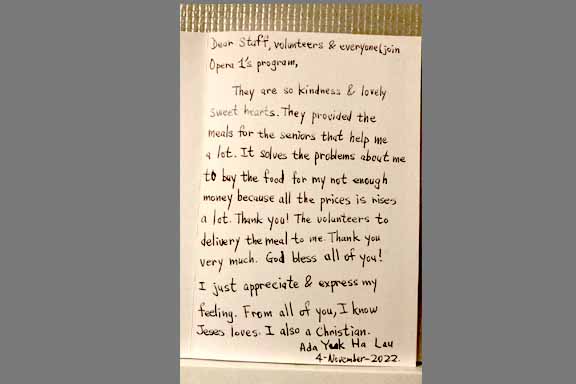 Dear Staff, volunteers & everyone(join
Opera 1's program,
They are so kindness & lovely
sweet hearts. They provided the
meals for the seniors that help me
a lot. It solves the problems about me
to buy the food for my not enough
money because all the prices is rises
a lot. Thank you! The volunteers to
delivery the meal to me. Thank you
very much. God bless all of you!
I just appreciate & express my
feeling. From all of you, I know
Jeses loves. I also a Christian.
Ada Yeuk Ha Lau
4-November-2022.